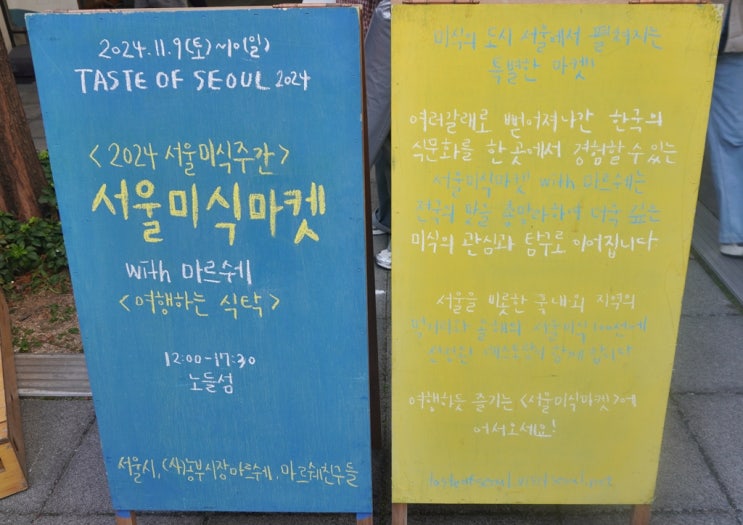 2024.11.9(토)~10(일)
TASTE OF SEOUL 2024
<2024 서울미식주간>
서울미식마켓
with 마르쉐
<여행하는 식탁>
12:00-17:30
노들섬
서울시, (사)농부시장마르쉐, 마르쉐친구들
미식의 도시 서울에서 펼쳐지는
특별한 마켓!
여러갈래로 뻗어져나간 한국의
식문화를 한 곳에서 경험할 수 있는
서울미식마켓 with 마르쉐는
전국의 맛을 총망라하여 더욱 깊은
미식의 관심과 탐구로 이어집니다
서울을 비롯한 국내외 지역의
올해의 서울미식100선에
함께 합니다
여행하듯 즐기는 <서울미식마켓>에
어서오세요!